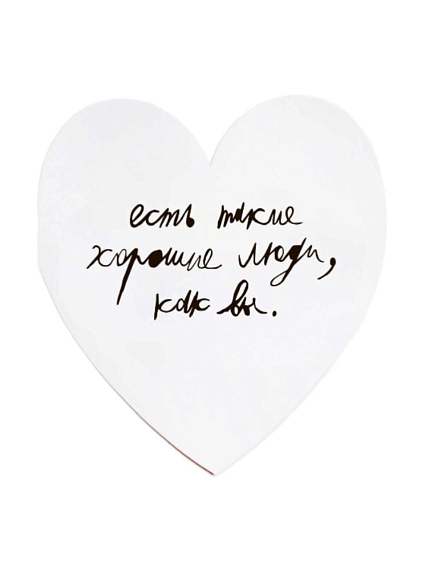 есть такие
хорошие люди,
как вы.